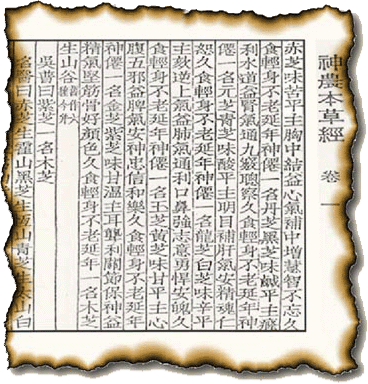 神農本草經 卷一
赤芝味苦平主胸中結益心氣補中增慧智不忘久
食輕身不老延年神僊一名丹芝黑芝味鹹平主癃
利水道益腎氣通九竅聰察久食輕身不老延年神
僊一名元芝青芝味酸平主明目補肝氣安精魂仁
恕久食輕身不老延年神僊一名龍芝白芝味辛平
主欬逆上氣益肺氣通利口鼻強志意勇悍安魄久
食輕身不老延年神僊一名玉芝黃芝味甘平主心
腹五邪益脾氣安神忠信和樂久食輕身不老延年
神僊一名金芝紫芝味甘溫主耳聾利關節保神益
精氣堅筋骨好顏色久食輕身不老延年一名木芝
生山谷
吳普曰紫芝一名木芝
名醫曰赤芝生霍山黑芝生恆山青芝生太山白